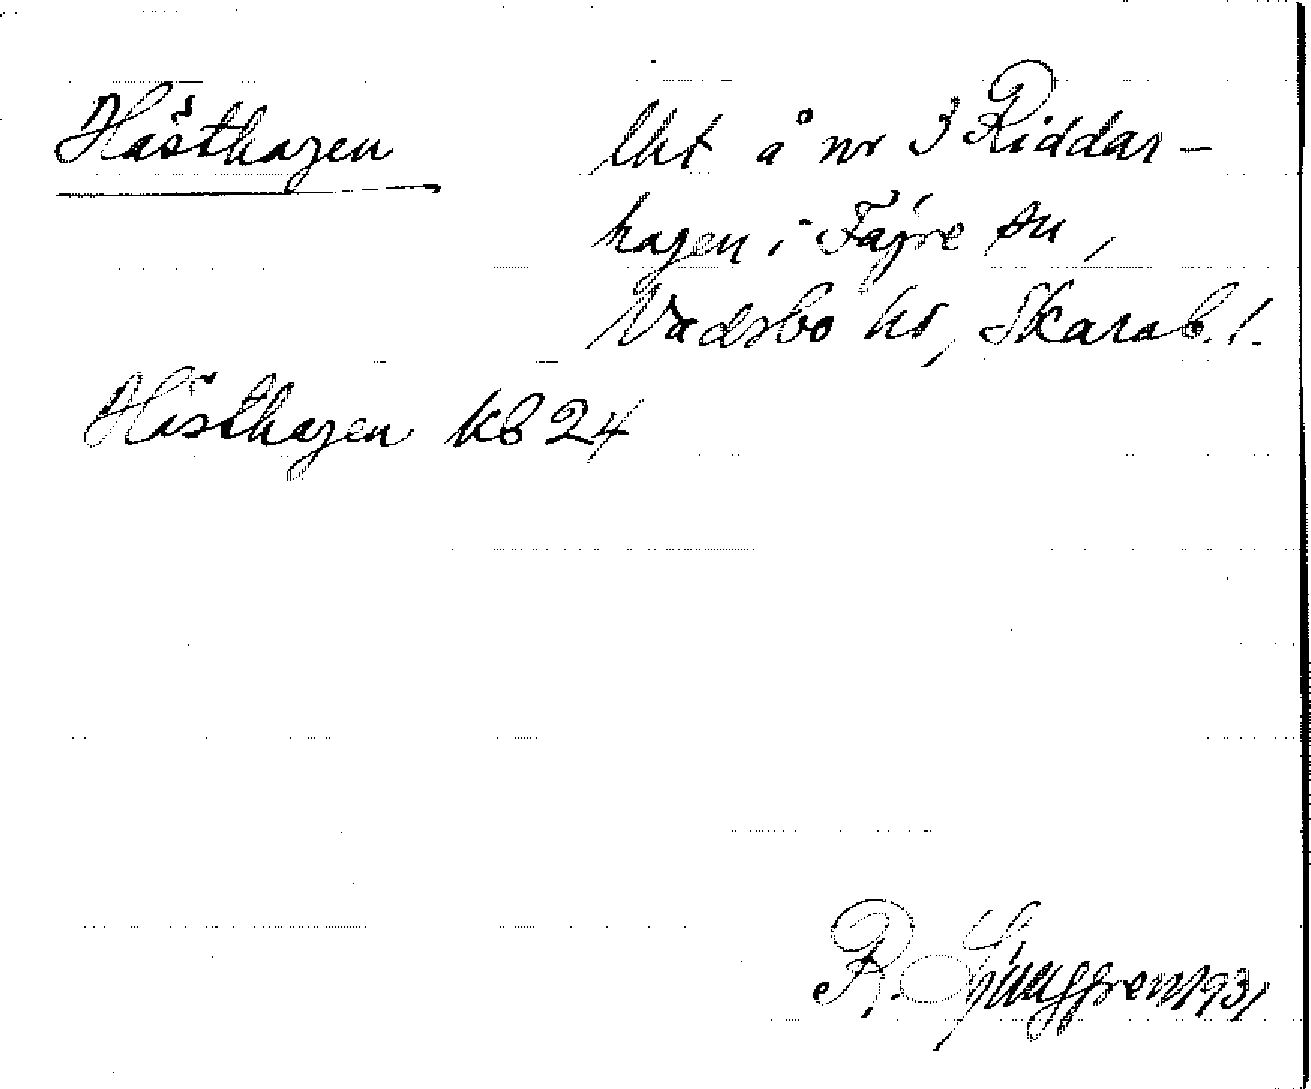 Hästhagen lht å nr 3 Riddar-
hagen i Fägre sn,
Vadsbo hd, Skarab. l.
Hästhagen kb 24
R. Ljunggren 1931